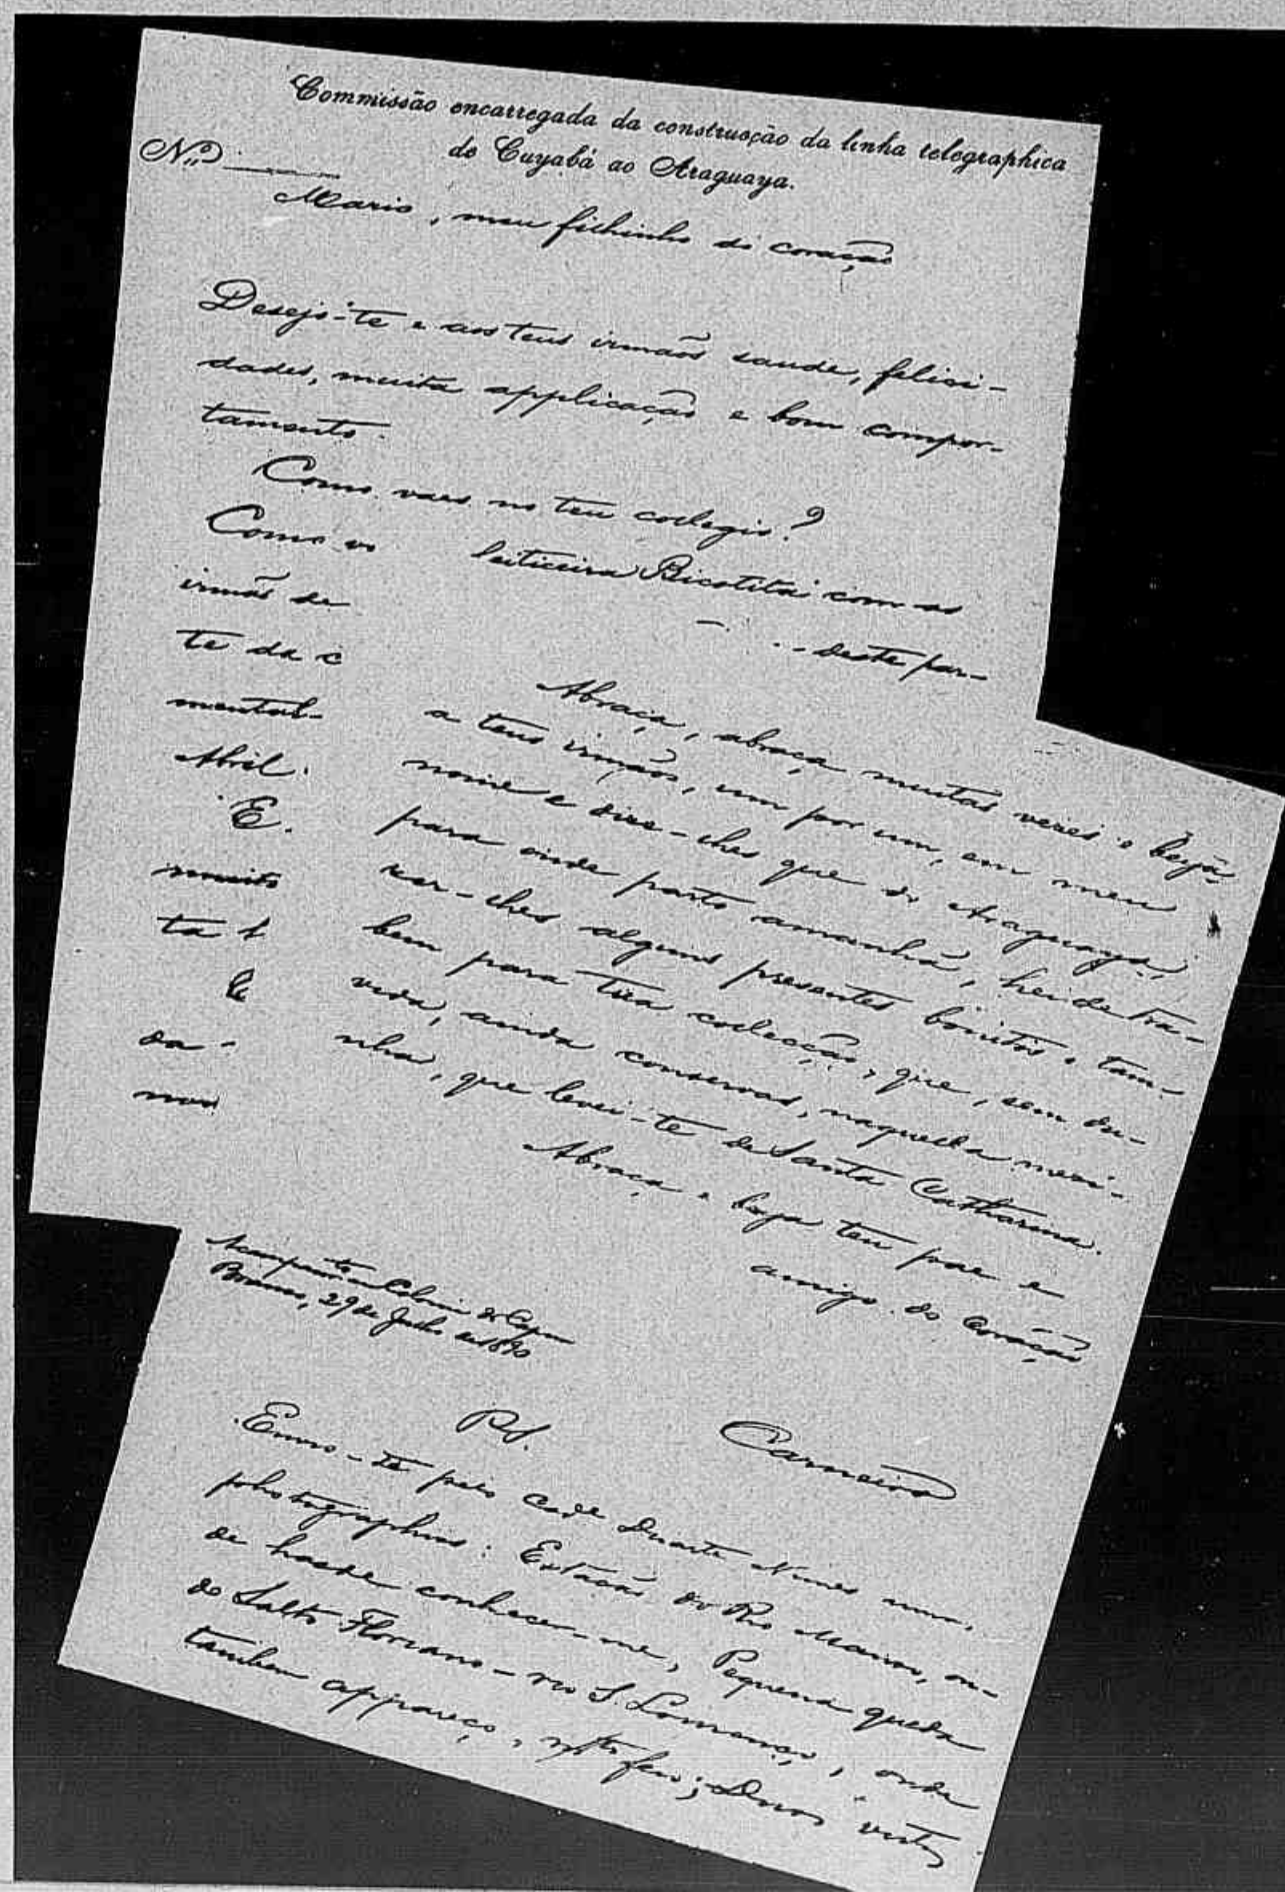 Commissão encarregada da construcção da linha telegraphica
de Cuyabá ao Araguaya.
Nº
Mario, meu filhinho do coração
Desejo-te e aos teus irmãos saude, felici-
dades, muita applicação e bom compor-
tamento.
Como vaes no teu collegio?
Como va feiticeira Bicotita com as
irmãs de deste par-
te da c
mental-
Abril.
E.
muito
ta
da
nos
Abraça, abraça muitas vezes e beija
a teus irmãos, um por um, em meu
nome e dize-lhes que do Araguaya,
para onde parto amanhã, hei de tra-
zer-lhes alguns presentes bonitos e tam-
bem para tua collecção, que, sem du-
vida, ainda conservas, naquella mesi-
nha, que levei-te de Santa Catharina.
Abraça e beija teu pae e
amigo do Coração
Acampamto Colonia do Capim
Branco, 29 de Julho de 1890
Carneiro
P.S.
Envio-te pelo Cade Duarte Nunes uma,
photographias: Estação do Rio Manso, on-
de hasde conhecer-me, Pequena queda
do Salto Floriano - rio S. Lourenço, onde
tambem appareço, feio; Duas vistas